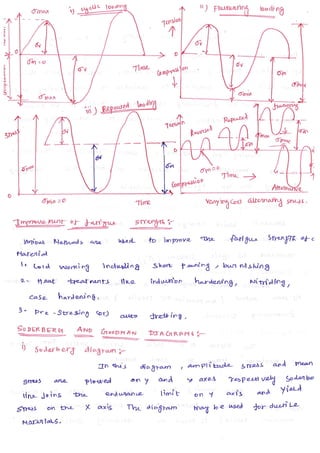 i) cyclic loading
ii) Fluctuating loading
σmax
Tension
σv
σv
σv
σv
σm=0
σv
Time
Compression
σm
σmax
σmin
Time
iii) Repeated loading
Stress
σv
σv
σm
σmax
σm
σmin=0
Time
Tension
Reversed
Repeated
σmax
Time
Compression
Alternating
Varying (or) alternating stress.
Improvement of fatigue strength:-
Various Methods are used to improve the fatigue strength of a
Material
1. Cold working including Short peening, burnishing
2. Heat treatments like induction hardening, Nitriding,
case hardening.
3. Pre-stressing (or) auto
SODERBERG AND GOODMAN DIAGRAMS:-
i) Soderberg diagram:-
In this diagram, amplitude stress and mean
stress are plotted on y and x axes respectively Soderbe
line joins the endurance limit on y axis and yield
stress on the X axis The diagram may be used for ductile
Materials.